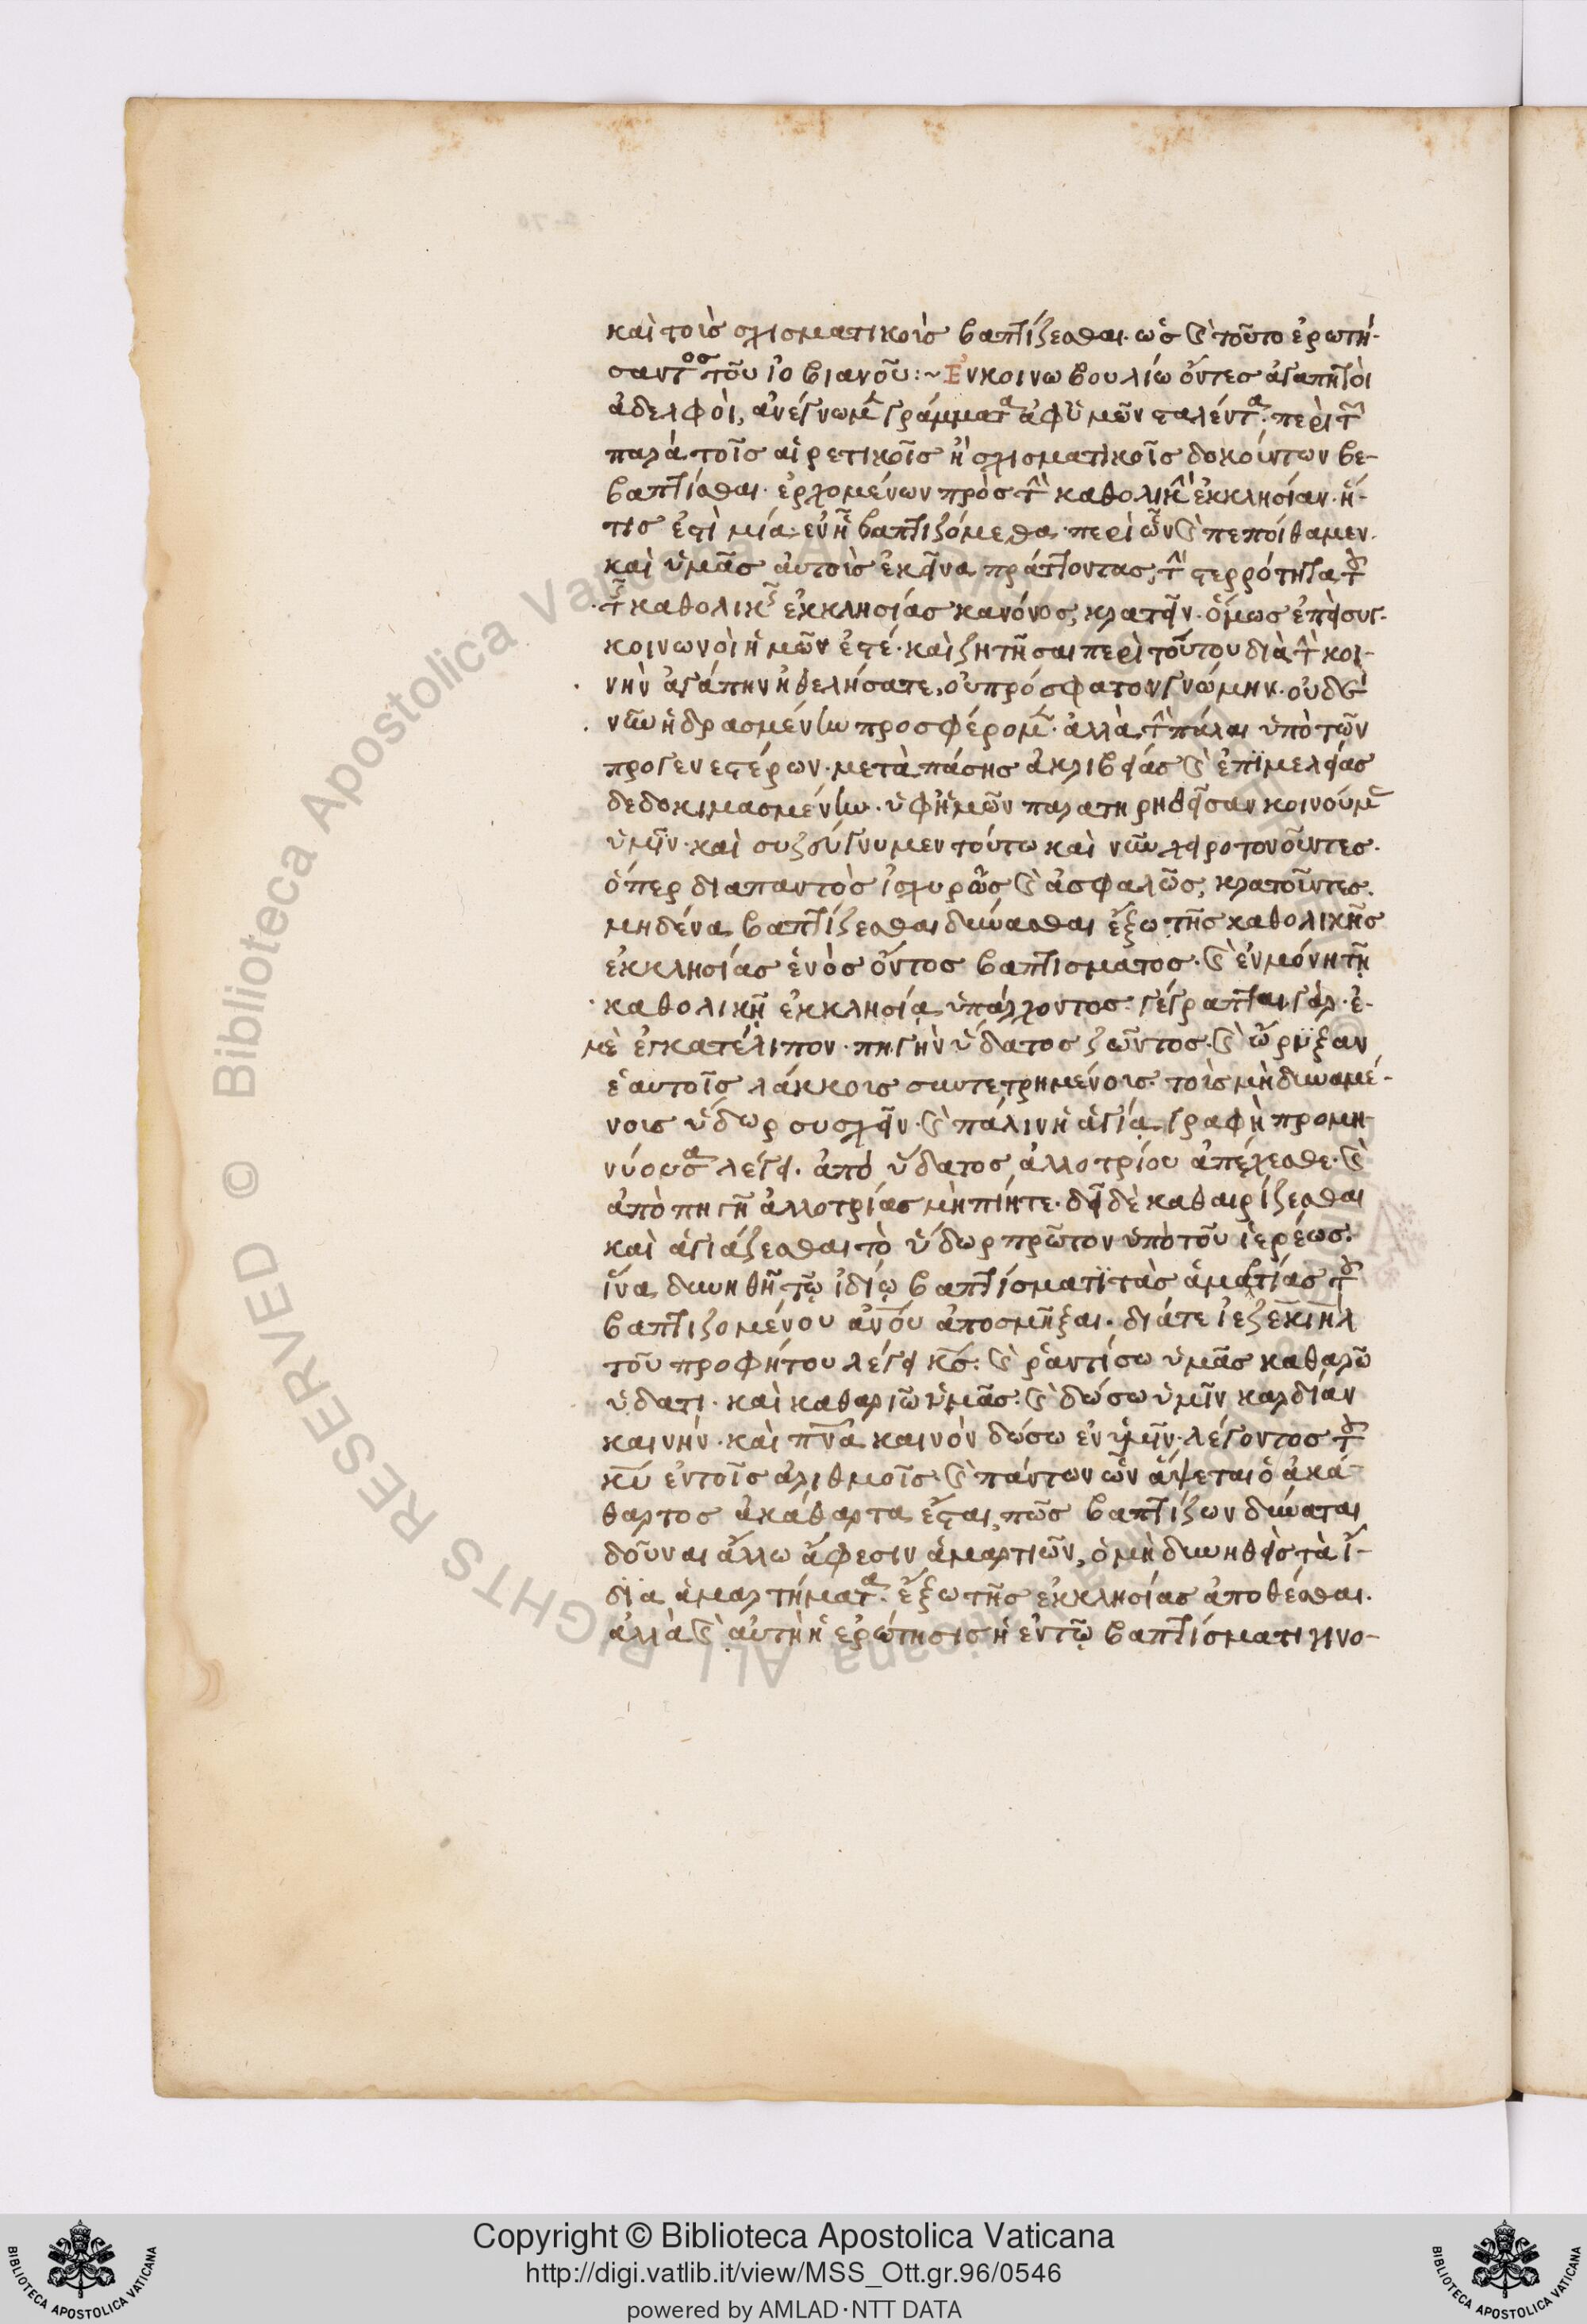 καὶ τοῖς σχισματικοῖς βαπτίζεσθαι· ὡς καὶ τοῦτο ἐρωτή-
σαντος τοῦ ἰοβιανοῦ :~ Ἐν κοινω βουλίω ὄντες ἀγαπητοὶ
ἀδελφοὶ, ἀνέγνωμεν γράμματα ἀφ ὑμῶν σταλέντα· περὶ τῶν
παρά τοῖς αἱρετικοῖς ἢ σχισματικοῖς δοκούντων βε-
βαπτίσθαι· ἐρχομένων πρὸς τὴν καθολικὴν ἐκκλησίαν· ἥ-
τις ἐστὶ μία· ἐν ᾗ βαπτιζόμεθα· περὶ ὧν καὶ πεποίθαμεν·
καὶ ὑμᾶς αὐτοὶς ἐκεῖνα πράττοντας, τὴν στερρότητα τοῦ
τῆς καθολικῆς ἐκκλησίας κανόνος, κρατεῖν· ὅμως ἐπεὶ συγ-
κοινωνοὶ ἡμῶν ἐστέ· καὶ ζητῆσαι περὶ τούτου διὰ τὴν κοι-
νὴν ἀγάπην ἠθελήσατε, οὐ πρόσφατον γνώμην· οὐδὲ
νῦν ἡδρασμένην προσφέρομεν· ἀλλὰ τὴν πάλαι ὑπὸ τῶν
προγενεστέρων· μετὰ πάσης ἀκριβείας καὶ ἐπιμελείας
δεδοκιμασμένην· ὑφ ἡμῶν παρατηρηθεῖσαν κοινούμεν
ὑμῖν· καὶ συζεύγνυμεν τούτω καὶ νῦν χειροτονοῦντες·
ὅπερ διαπαντὸς ἰσχυρῶς καὶ ἀσφαλῶς, κρατοῦντες·
μηδένα βαπτίζεσθαι δύνασθαι ἔξω τῆς καθολικῆς
ἐκκλησίας ἑνὸς ὄντος βαπτισματος· καὶ ἐν μόνη τῇ
καθολικῇ ἐκκλησία ὑπάρχοντος· γέγραπται γάρ· ἐ-
μὲ ἐγκατέλιπον· πηγὴν ὕδατος ζῶντος· καὶ ὤρυξαν
ἑαυτοῖς λάκκοις συντετρημένοις· τοὶς μὴ δυναμέ-
νοις ὕδωρ συσχεῖν· καὶ πάλιν ἡ ἁγία γραφὴ προμη-
νύουσα λέγει· ἀπό ὕδατος ἀλλοτρίου ἀπέχεσθε· καὶ
ἀπὸ πηγῆ ἀλλοτρίας μὴ πίητε· δεῖ δὲ καθαιρίζεσθαι
καὶ ἁγιάζεσθαι τὸ ὕδωρ πρῶτον ὑπὸ τοῦ ἱερέως·
ἵνα δυνηθῇ τῷ ἰδίῳ βαπτίσματι τὰς ἁμαρτίας τοῦ
βαπτιζομένου ἀνου ἀποσμῆξαι· διάτε ἰεζεκιὴλ
τοῦ προφήτου λέγει κς· καὶ ῥαντίσω ὑμᾶς καθαρῶ
ὕδατι· καὶ καθαριῶ ὑμᾶς· καὶ δώσω ὑμῖν καρδίαν
καινήν· καὶ πνα καινὸν δώσω ἐν ὑμῖν· λέγοντος τοῦ
κυ ἐν τοῖς ἀριθμοῖς· καὶ πάντων ὧν ἅψεται ὁ ἀκά
θαρτος ἀκάθαρτα ἔσται, πῶς βαπτίζων δύναται
δοῦναι ἄλλω ἄφεσιν ἁμαρτιῶν, ὁ μὴ δυνηθεὶς τὰ ἴ-
δια ἁμαρτήματα· ἔξω τῆς ἐκκλησίας ἀποθέσθαι·
ἀλλὰ καὶ αὐτὴ ἡ ἐρώτησις ἡ ἐν τῷ βαπτίσματι γινο-
Copyright © Biblioteca Apostolica Vaticana
http://digi.vatlib.it/view/MSS_Ott.gr.96/0546
powered by AMLAD·NTT DATA